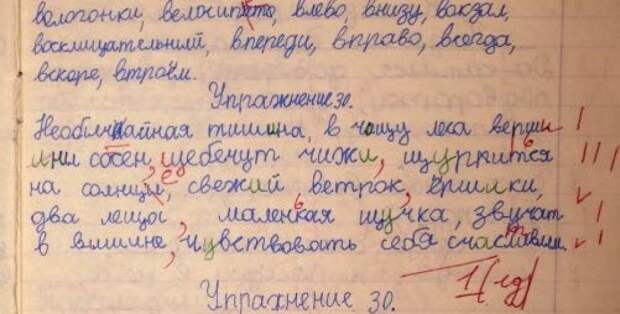 вологонки, велосипето, влево, внизу, вокзал,
восклицательний, впереди, вправо, всегда,
вскоре, втроём.
Упражнение 30.
Необичайная тишина, в чащу леса верши
ини сосен, щебечут чижи, щуррится
на солнци, свежий ветрок, ёршики,
два лещы, маленкая щучка, звучат
в вишине, чувствовать себя счасливим.
1(ед)
Упражнение 30.